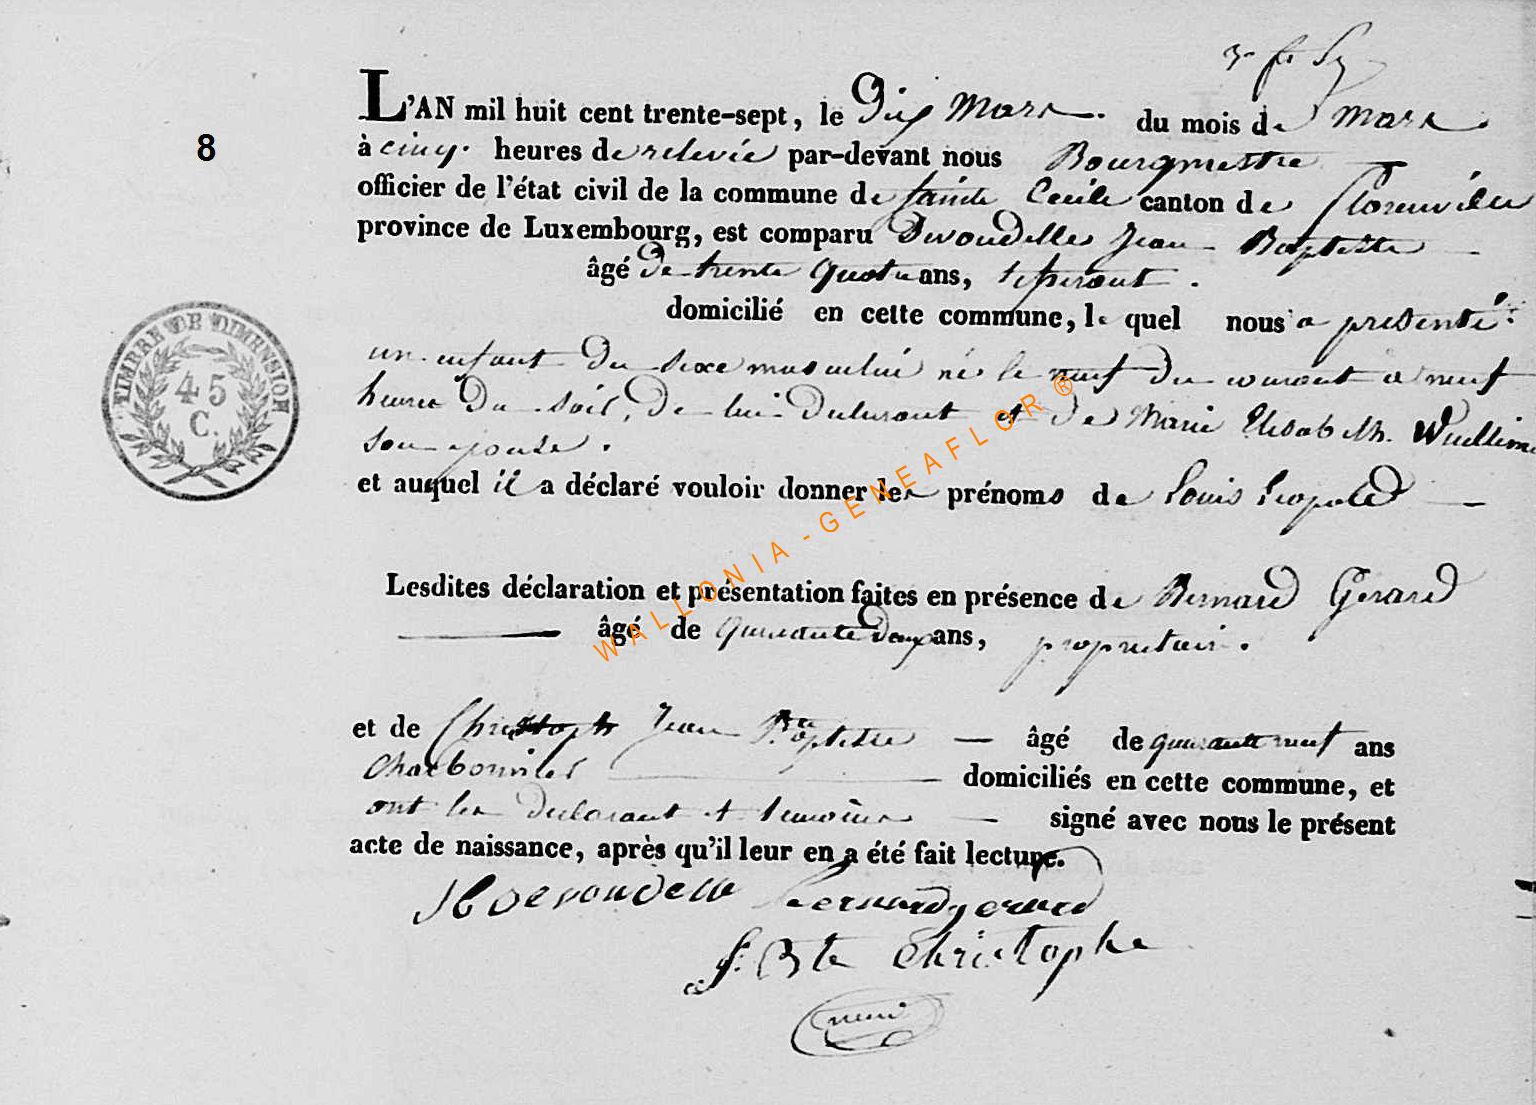 L'AN mil huit cent trente-sept, le Dix Mars. du mois de mars
8
à cinq heures de relevée par-devant nous Bourgmestre
officier de l'état civil de la commune de Sainte Cecile canton de Florenville
province de Luxembourg, est comparu Devondelle Jean Baptiste
âgé de trente quatre ans,
domicilié en cette commune, le quel nous a présenté
un enfant du sexe masculin né le neuf du courant a neuf
heures du soir, de lui declarant et de Marie Elisabeth
son epouse.
et auquel il a déclaré vouloir donner les prénoms de Louis Leopold
Lesdites déclaration et présentation faites en présence de Bernard Gerard
âgé de quarante Deux ans, propriétaire.
et de Christoph Jean Baptiste âgé de quarante neuf ans
Charbonnier domiciliés en cette commune, et
ont les declarant et temoins signé avec nous le présent
acte de naissance, après qu'il leur en a été fait lecture.
bernard gerard
J. Bte Christophe
TIMBRE DE DIMENSION
45
C.
WALLONIA - GENEAFLOR ®